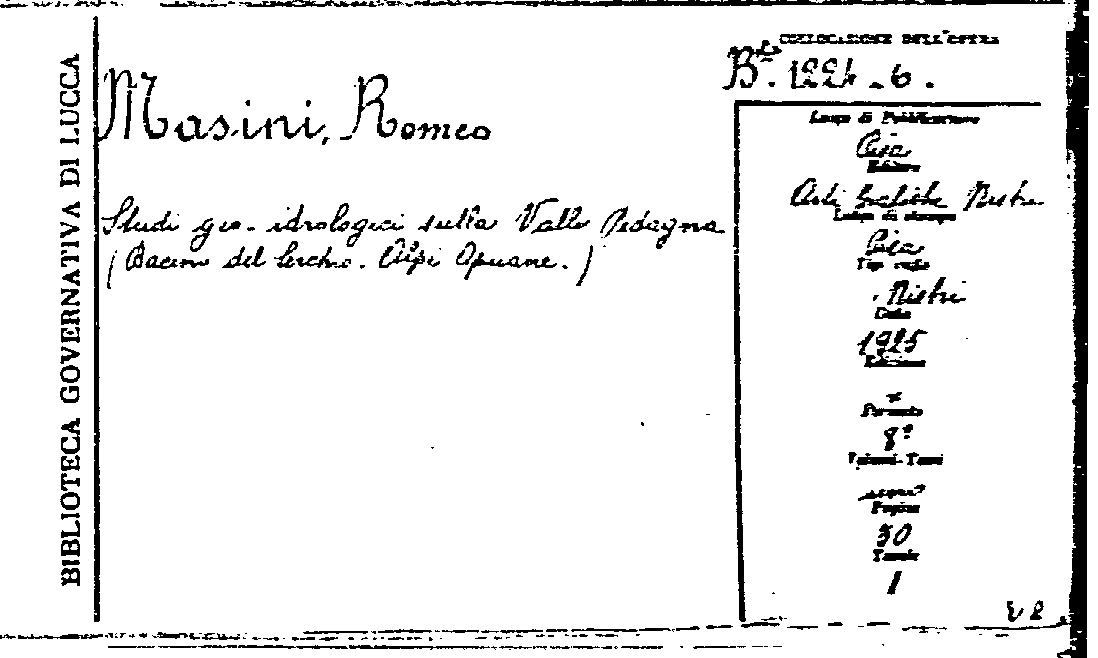 BIBLIOTECA GOVERNATIVA DI LUCCA
COLLOCAZIONE DELL'OPERA
Bta. 1224 - 6 .
Masini, Romeo
Studi geo-idrologici sulla Valle Pedogna
(Bacino del Serchio. Alpi Apuane.)
Luogo di Pubblicazione
Pisa
Editore
Arti Grafiche Nistri
Luogo di stampa
Pisa
Tipografia
Nistri
Data
1925
Edizione
Formato
8°
Volumi-Tomi
Pagine
50
Tavole
1